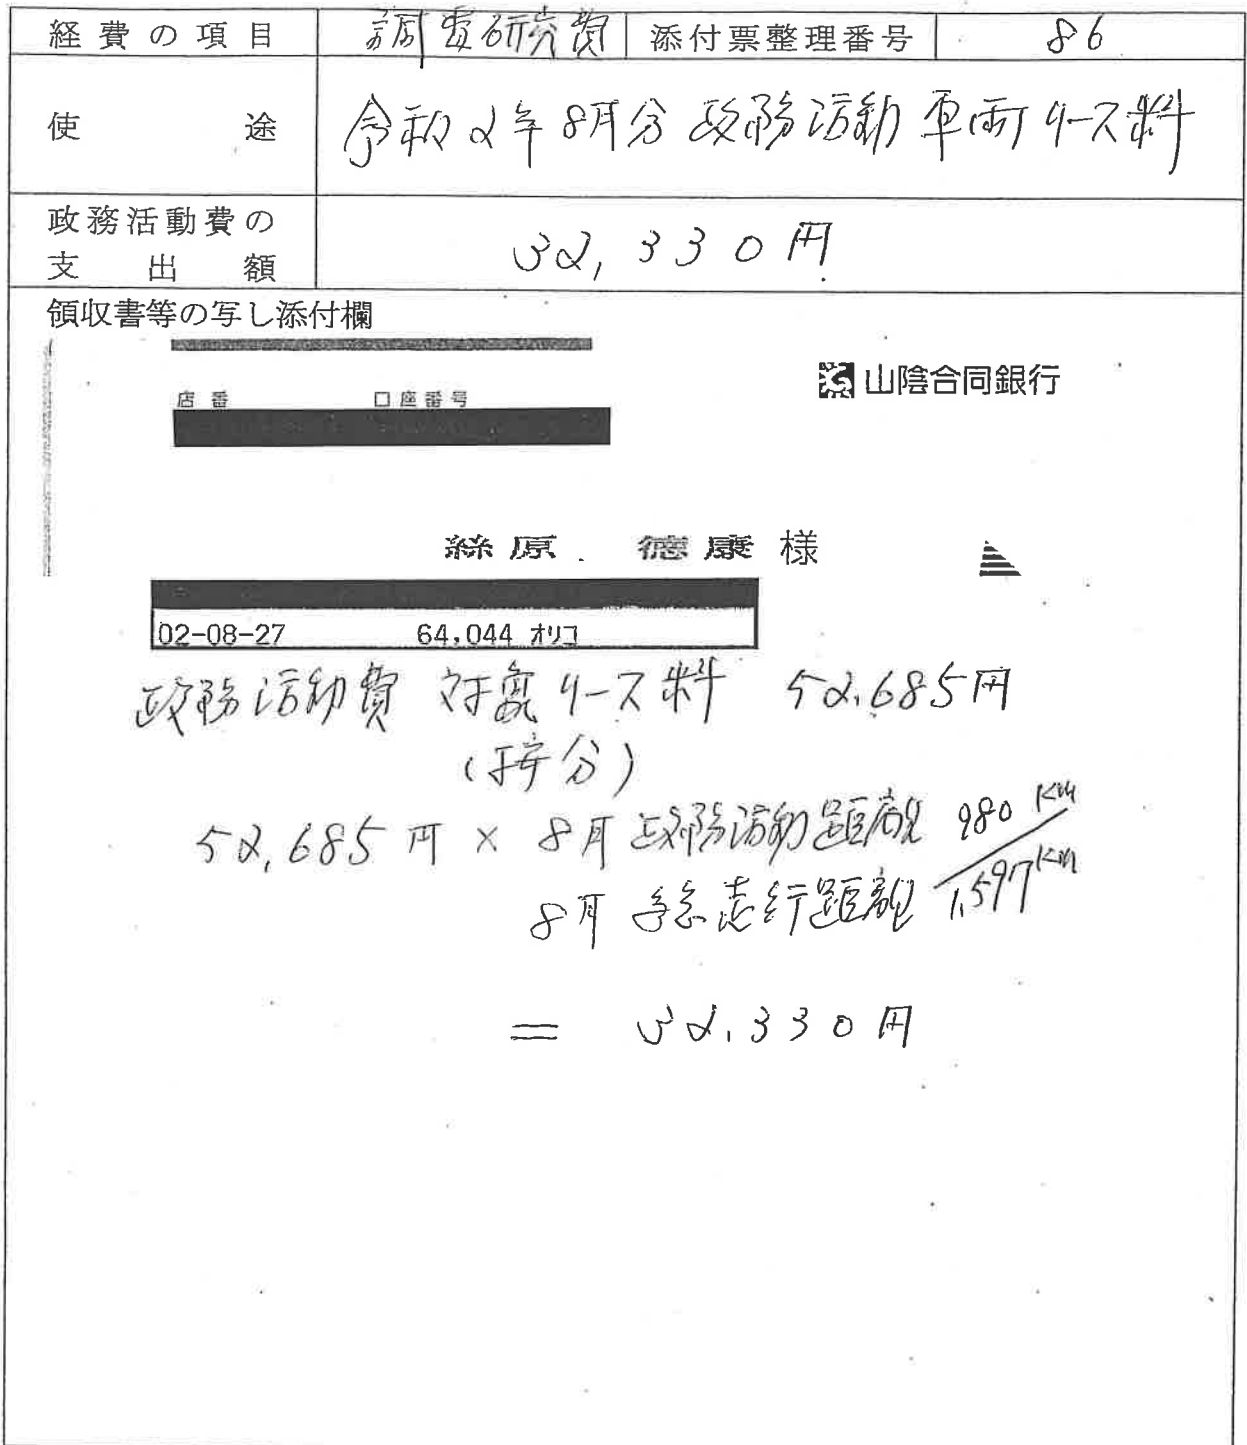 経費の項目 調査研究費 添付票整理番号 86
使途 令和2年8月分 政務活動 車両リース料
政務活動費の
支出額 32,330円
領収書等の写し添付欄
山陰合同銀行
店番 口座番号
絲原 德康 様
02-08-27 64,044 オリコ
政務活動費 対象リース料 52,685円
(按分)
52,685円 × 8月 政務活動距離 980Km
8月 総走行距離 1,597Km
= 32,330円